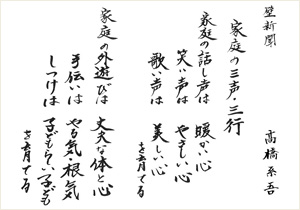 壁新聞
高橋系吾
家庭の三声・三行
家庭の話し声は 暖かい心
笑い声は やさしい心
歌い声は 美しい心
を育てる
家庭の外遊びは 丈夫な体と心
手伝いは やる気・根気
しつけは 子どもらしい子ども
を育てる